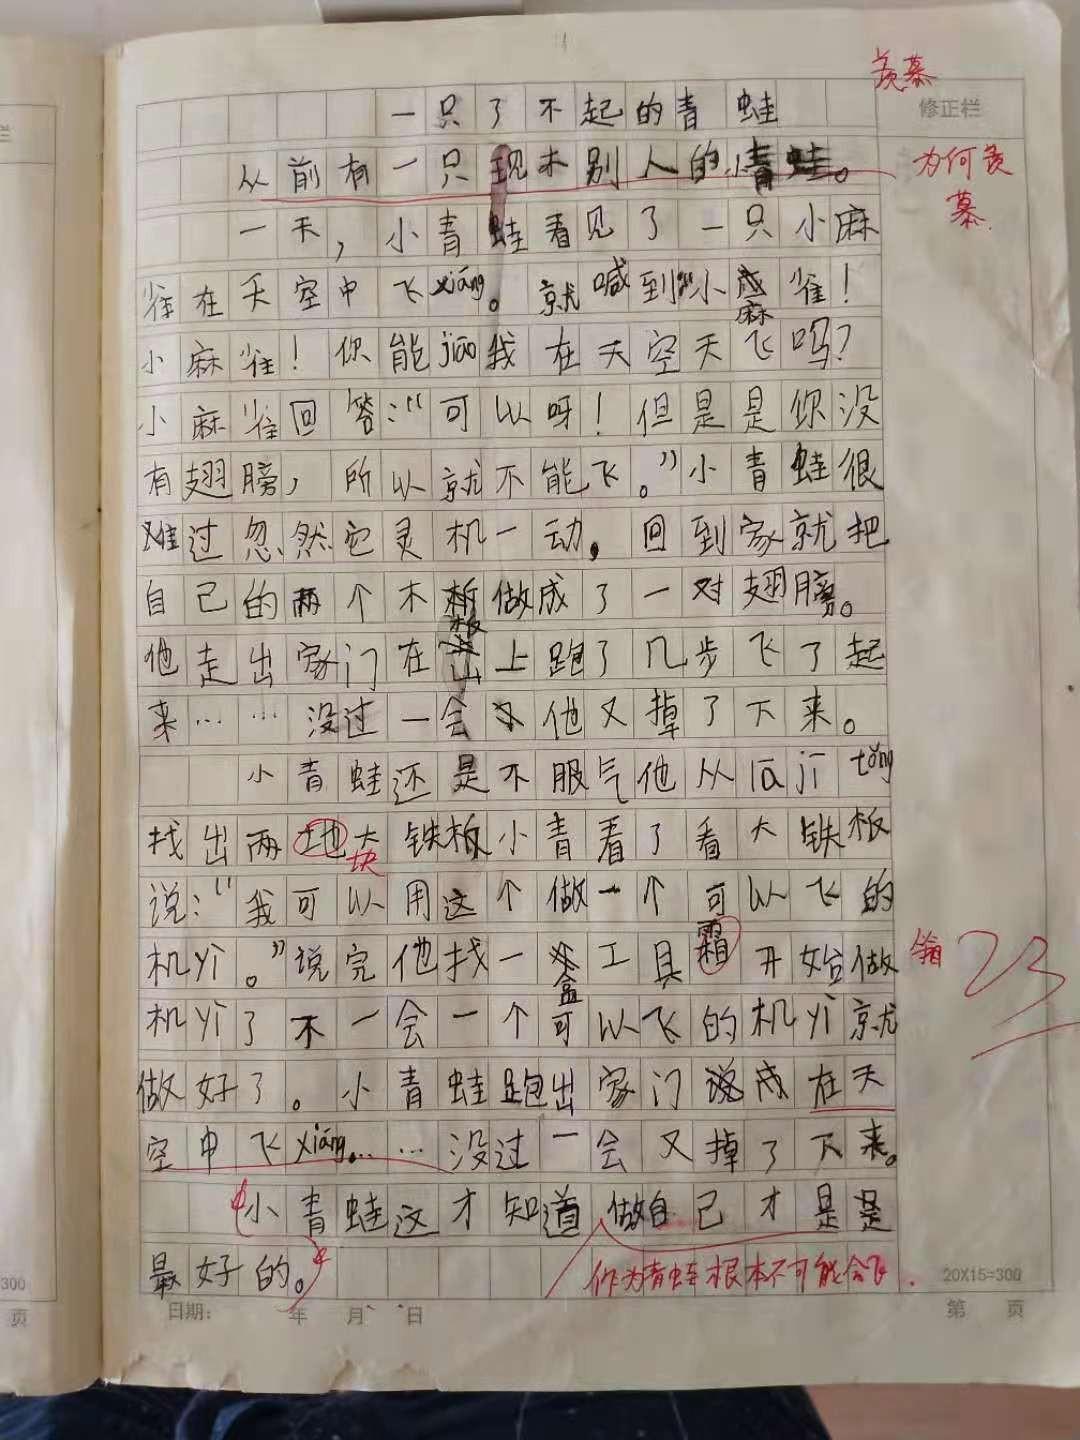 羡慕
修正栏
一只了不起的青蛙
从前有一只现木别人的小青蛙。
为何羡
慕
一天，小青蛙看见了一只小麻
雀在天空中飞xiáng。就喊到“小麻雀！
小麻雀！你能jiāo我在天空天飞吗？
小麻雀回答：“可以呀！但是是你没
有翅膀，所以就不能飞。”小青蛙很
难过忽然它灵机一动，回到家就把
自己的两个木板做成了一对翅膀。
他走出家门在山上跑了几步飞了起
来……没过一会他又掉了下来。
小青蛙还是不服气他从lā jī tǒng
找出两地大铁板小青看了看大铁板
块
说：“我可以用这个做一个可以飞的
机yì。”说完他找一盒工具霜开始做
箱
23
机yì了不一会一个可以飞的机yì就
做好了。小青蛙跑出家门说成在天
空中飞xiáng……没过一会又掉了下来。
小青蛙这才知道做自己才是是
最好的。
作为青蛙根本不可能会飞.
20X15=300
日期: 年 月 日
第 页
300
页
栏